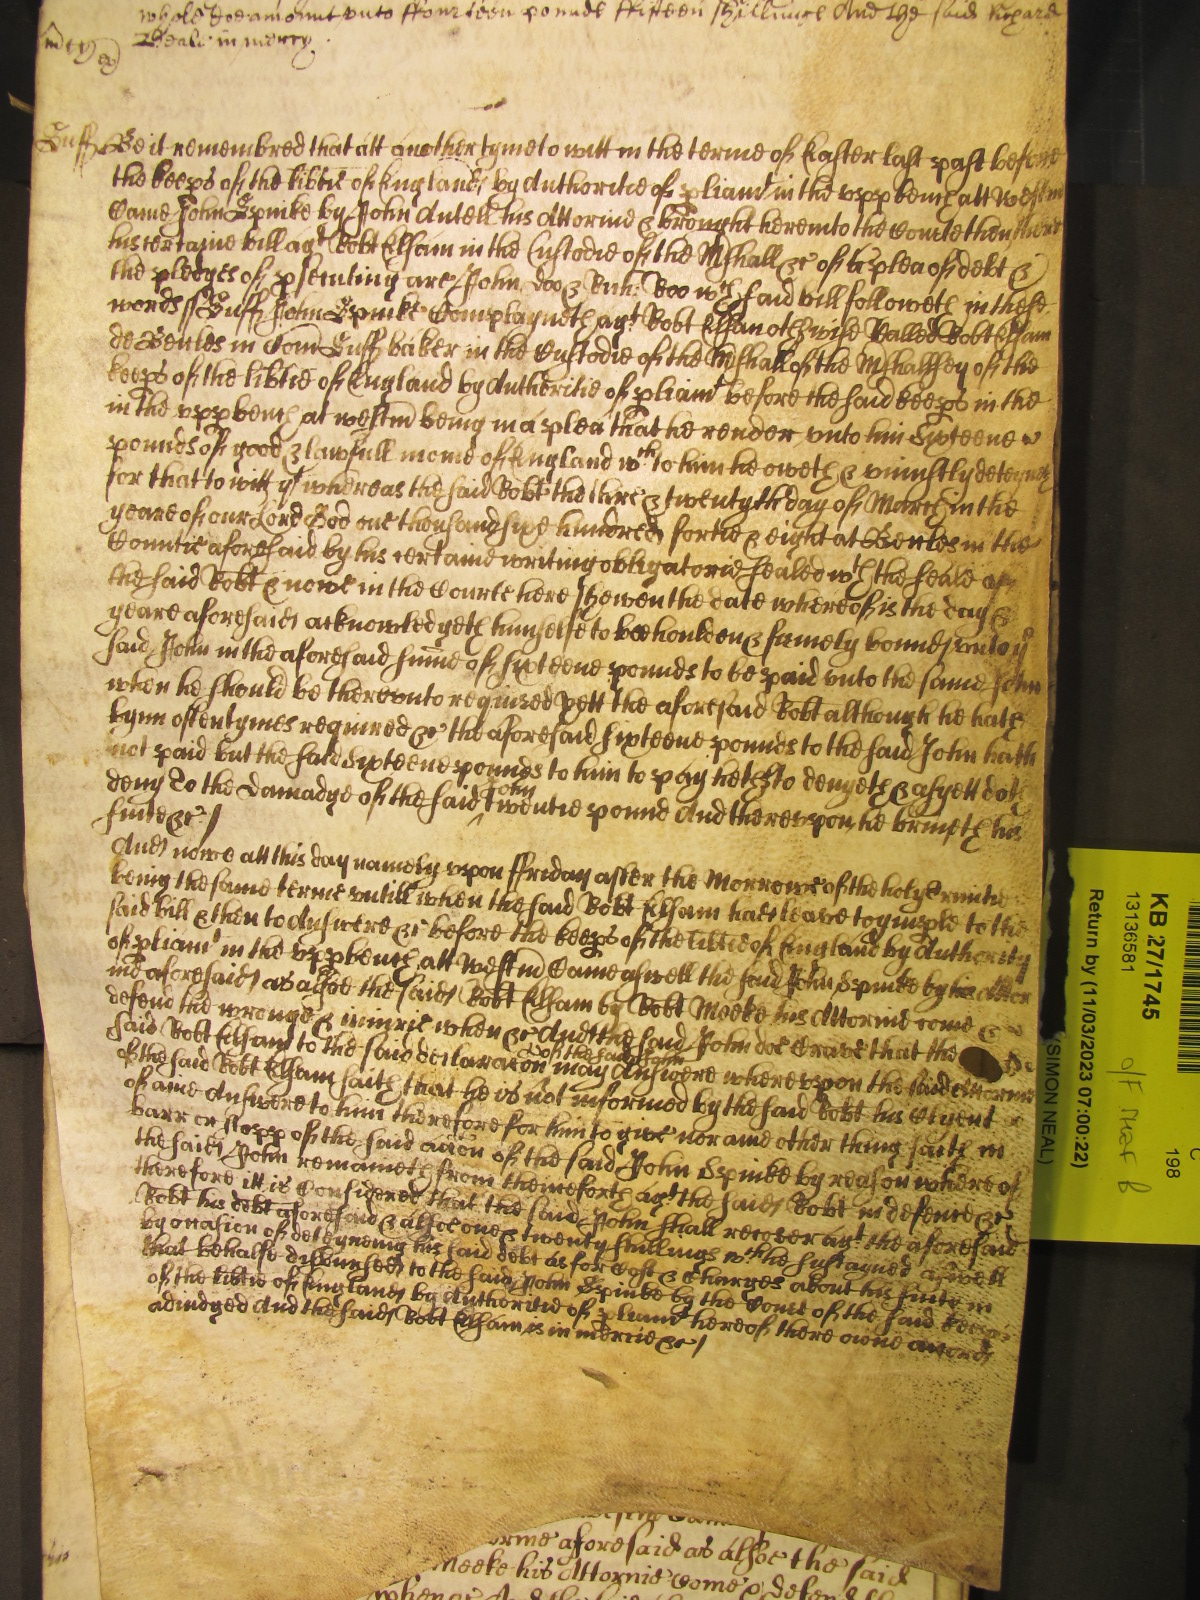 whole doe amount unto ffourteen pounds ffifteen shillings And the said Richard
in mercy
Suff Be it remembred that att another tyme to witt in the terme of Easter last past before
the keeps of the libtie of England by Authoritie of pliamt in the upp bench att Westm
Came John Spinke by John Antell his Attornie & brought here into the Courte then there
his certaine bill agt Robt Elsam in the Custodie of the Mshall &c of a plea of debt &
the pledges of psecuting are John Doo & Rich: Roo wch said bill followeth in these
words ss Suff John Spinke Complayneth agt Robt Elsam othwise Called Robt Elsam
de Beccles in Com Suff baker in the Custodie of the Mshall of the Mshallsey of the
keeps of the libtie of England by Authoritie of pliamt before the said keeps in the
in the upp bench at westm being in a plea that he render unto him Sixteene
pounds of good & lawfull monie of England wch to him he oweth & uniustly deteyneth
for that to witt yt whereas the said Robt the three & twentyth day of March in the
yeare of our Lord God one thousand sixe hundred fortie & eight at Beccles in the
Countie aforesaid by his certaine writing obligatorie sealed wth the seale of
the said Robt & nowe in the Courte here shewen the date whereof is the day &
yeare aforesaid acknowledgeth himselfe to bee houlden & firmely bound unto ye
said John in the aforesaid summe of sixteene pounds to be paid unto the same John
when he should be thereunto required yett the aforesaid Robt although he hath
bynn oftentymes required &c the aforesaid sixteene pounds to the said John hath
not paid but the said Sixteene pounds to him to pay hetherto denyeth & as yett doth
deny To the damadge of the said John twentie pound And thereupon he bringeth his
suite &c /
And nowe att this day namely upon ffriday after the Morrowe of the holy Trinitie
being the same terme untill when the said Robt Elsam had leave to ymple to the
said bill & then to Answere &c before the keeps of the libtie of England by Authority
of pliamt in the upp bench att Westm Came aswell the said John Spinke by his Attor
nie aforesaid as alsoe the said Robt Elsam by Robt Meeke his Attornie come &
defend the wronge & iniurie when &c And the said John doe Crave that the
said Robt Elsam to the said declaracon may Answere whereupon the said Attornie
of the said Robt Elsam saith that he is not informed by the said Robt his Clyent
of anie Answere to him therefore for him to give nor anie other thing saith in
barr or stopp of the said accion of the said John Spinke by reason whereof
the said John remaineth from thenceforth agt the said Robt in defence &c
therefore itt is Considered that the said John shall recover agt the aforesaid
Robt his debt aforesaid & alsoe one & twenty shillings wch he sustayned aswell
by occasion of deteyneing his said debt as for Cost & Charges about his suite in
that behalfe disbursed to the said John Spinke by the Court of the said keeps
of the libtie of England by Authoritie of pliamt hereof there owne accord
adiudged And the said Robt Elsam is in mercie &c /
orme aforesaid as alsoe the said
Meeke his Attornie come & defend
KB 27/1745
13136581
Return by (11/03/2023 07:00:22)
(SIMON NEAL)
198